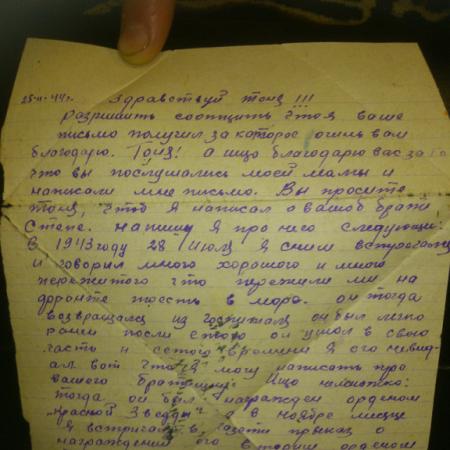 Здравствуй Тоня !!!
Разришить сообщить что я ваше
письмо получил за которое очинь вам
благодарю. Тоня! а ищо благодарю вас за то
что вы послушались моей мамы и
написали мне письмо. Вы просите
Тоня, чтоб я написал о вашом брати
Степе. напишу я про него следующие:
В 1943 году 28 июля я сним встречался
и говорил много хорошого и много
пережитого что пережили мы на
фронте
он тогда
возвращался из госпиталя он был легко
ранен после етого он ушол в свою
часть и сетого времини я его невид-
ал вот что я могу написать про
вашого братишку. Ищо
тогда он был награжден орденом
"красной Звезды" а в ноябре месяце
я встричал в газети приказ о
награждении его вторым орденом